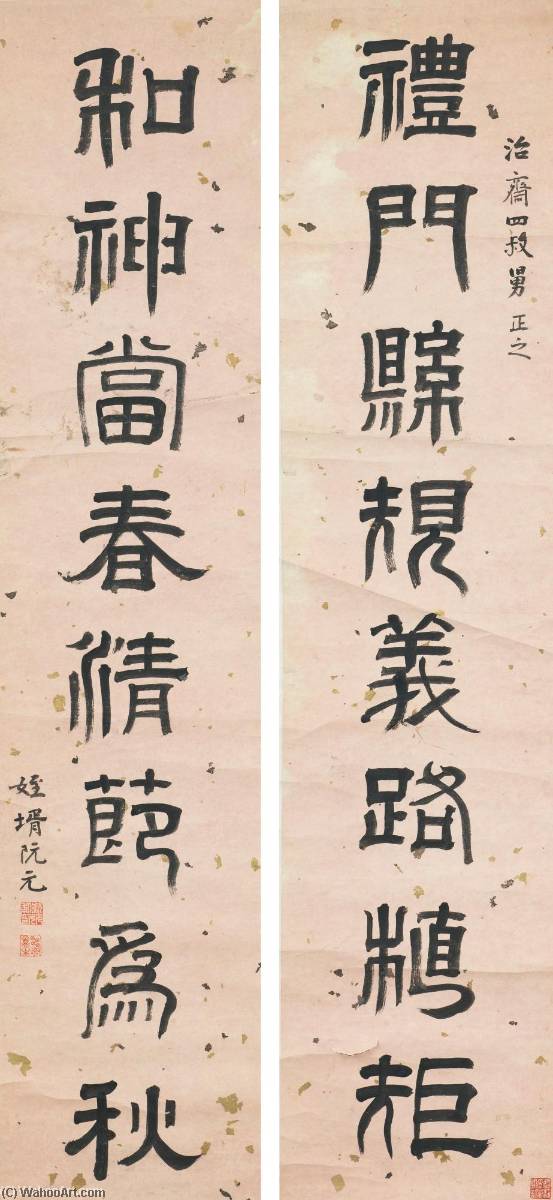 治齋四叔舅正之
禮門縣規義路植矩
和神當春清節爲秋
姪壻阮元
(C) WahooArt.com